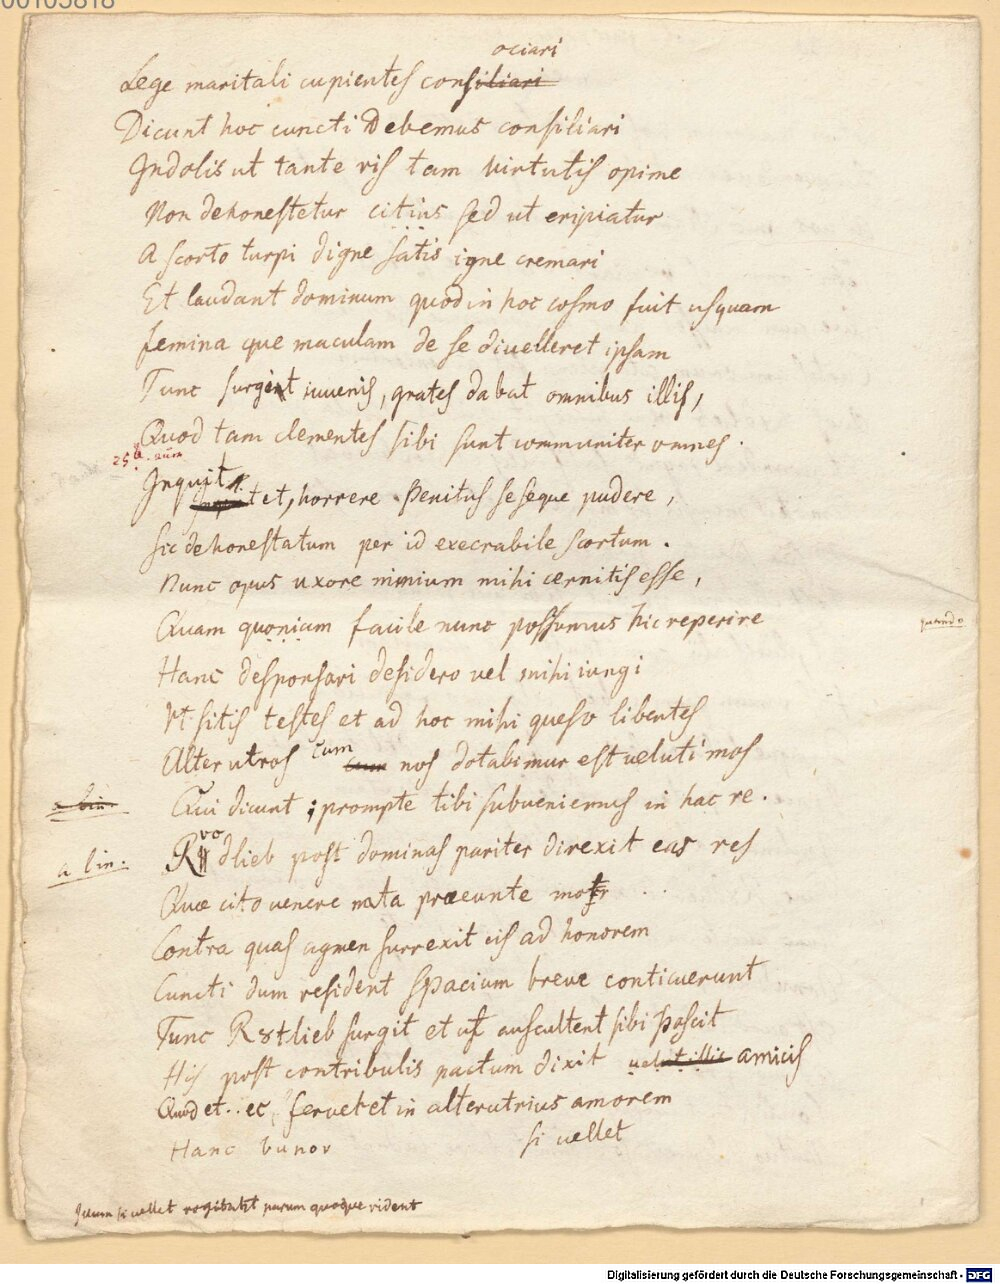 00105818
ociari
Lege maritali cupientes consiliari
Dicunt hoc cuncti debemus consiliari
Indolis ut tante vis tam virtutis opime
Non dehonestetur citius sed ut eripiatur
A scorto turpi digne satis igne cremari
Et laudant dominum quod in hoc cosmo fuit usquam
femina que maculam de se divelleret ipsam
Tunc surgint iuvenis, grates dabat omnibus illis,
Quod tam clementes sibi sunt communiter omnes.
Inquit
tet, horrere penitus seseque pudere,
sic dehonestatum per id execrabile scortum.
Nunc opus uxore nimium mihi cernitis esse,
Quam quonium facile nunc possumus hic reperire
quando
Hanc desponsari desidero vel mihi iungi
Vt sitis testes et ad hoc mihi queso libentes
Alterutros cum nos dotabimur est veluti mos
a lin
Qui dicunt; prompte tibi subveniemus in hac re.
vo
a lin.
R dlieb post dominas pariter direxit eas res
Quae cito venere nata praeeunte motr ...
Contra quas agmen surrexit eis ad honorem
Cuncti dum resident spacium breve conticuerunt
Tunc Rotlieb surgit et ut auscultent sibi poscit
His post contribulis pactum dixit velut illic amicis
Quod et..ec fervet et in alterutrius amorem
Hanc bunov si vellet
si vellet rogitabant parum quoque rident
Digitalisierung gefördert durch die Deutsche Forschungsgemeinschaft - DFG